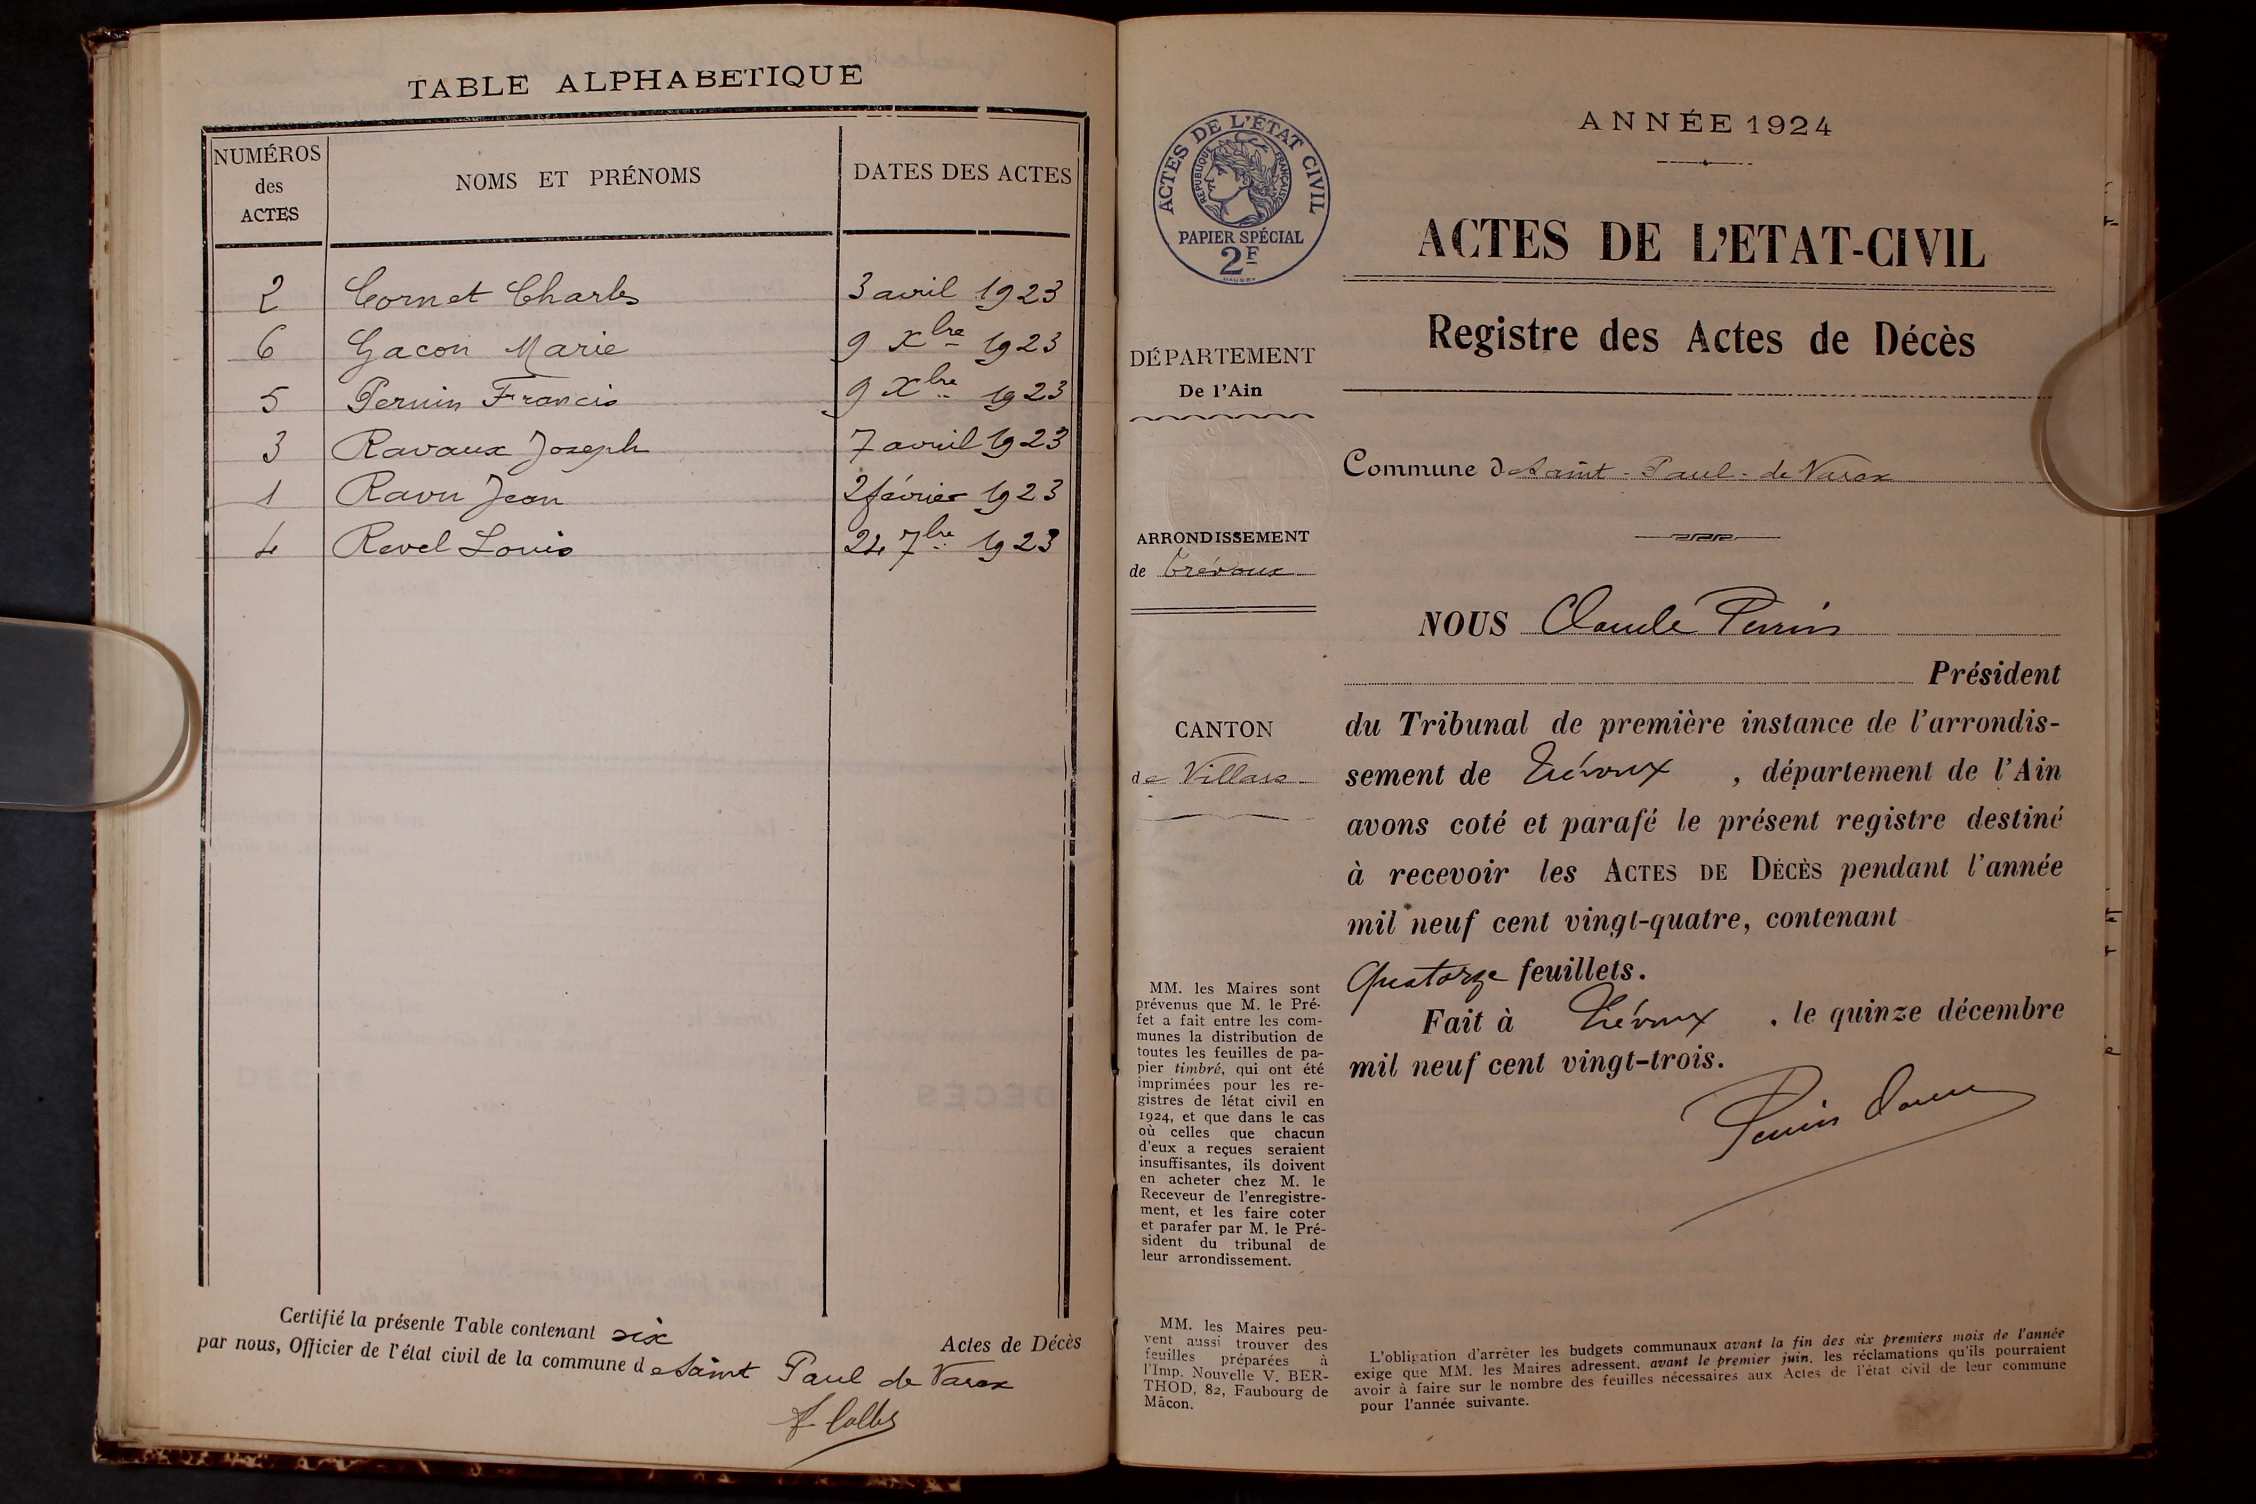 TABLE ALPHABETIQUE
NUMÉROS des ACTES
NOMS ET PRÉNOMS
DATES DES ACTES
2 Cornet Charles 3 avril 1923
6 Gacon Marie 9 Xbre 1923
5 Perrin Francis 9 Xbre 1923
3 Ravaux Joseph 7 avril 1923
1 Jean 2 février 1923
4 Revel Louis 24 7bre 1923
Certifié la présente Table contenant six Actes de Décès
par nous, Officier de l'état civil de la commune de Saint Paul de Varax
ANNÉE 1924
ACTES DE L'ÉTAT CIVIL
RÉPUBLIQUE FRANÇAISE
PAPIER SPÉCIAL
2F
ACTES DE L'ETAT-CIVIL
Registre des Actes de Décès
DÉPARTEMENT
De l'Ain
Commune de Saint-Paul-de Varax
ARRONDISSEMENT
de Trévoux
CANTON
de Villars
NOUS Claude Perrin
Président
du Tribunal de première instance de l'arrondis-
sement de Trévoux, département de l'Ain
avons coté et parafé le présent registre destiné
à recevoir les ACTES DE DÉCÈS pendant l'année
mil neuf cent vingt-quatre, contenant
Quatorze feuillets.
Fait à Trévoux, le quinze décembre
mil neuf cent vingt-trois.
Perrin Claude
MM. les Maires sont
prévenus que M. le Pré-
fet a fait entre les com-
munes la distribution de
toutes les feuilles de pa-
pier timbré, qui ont été
imprimées pour les re-
gistres de létat civil en
1924, et que dans le cas
où celles que chacun
d'eux a reçues seraient
insuffisantes, ils doivent
en acheter chez M. le
Receveur de l'enregistre-
ment, et les faire coter
et parafer par M. le Pré-
sident du tribunal de
leur arrondissement.
MM. les Maires peu-
vent aussi trouver des
feuilles préparées à
l'Imp. Nouvelle V. BER-
THOD, 82, Faubourg de
Mâcon.
L'obligation d'arrêter les budgets communaux avant la fin des six premiers mois de l'année
exige que MM. les Maires adressent, avant le premier juin, les réclamations qu'ils pourraient
avoir à faire sur le nombre des feuilles nécessaires aux Actes de l'état civil de leur commune
pour l'année suivante.